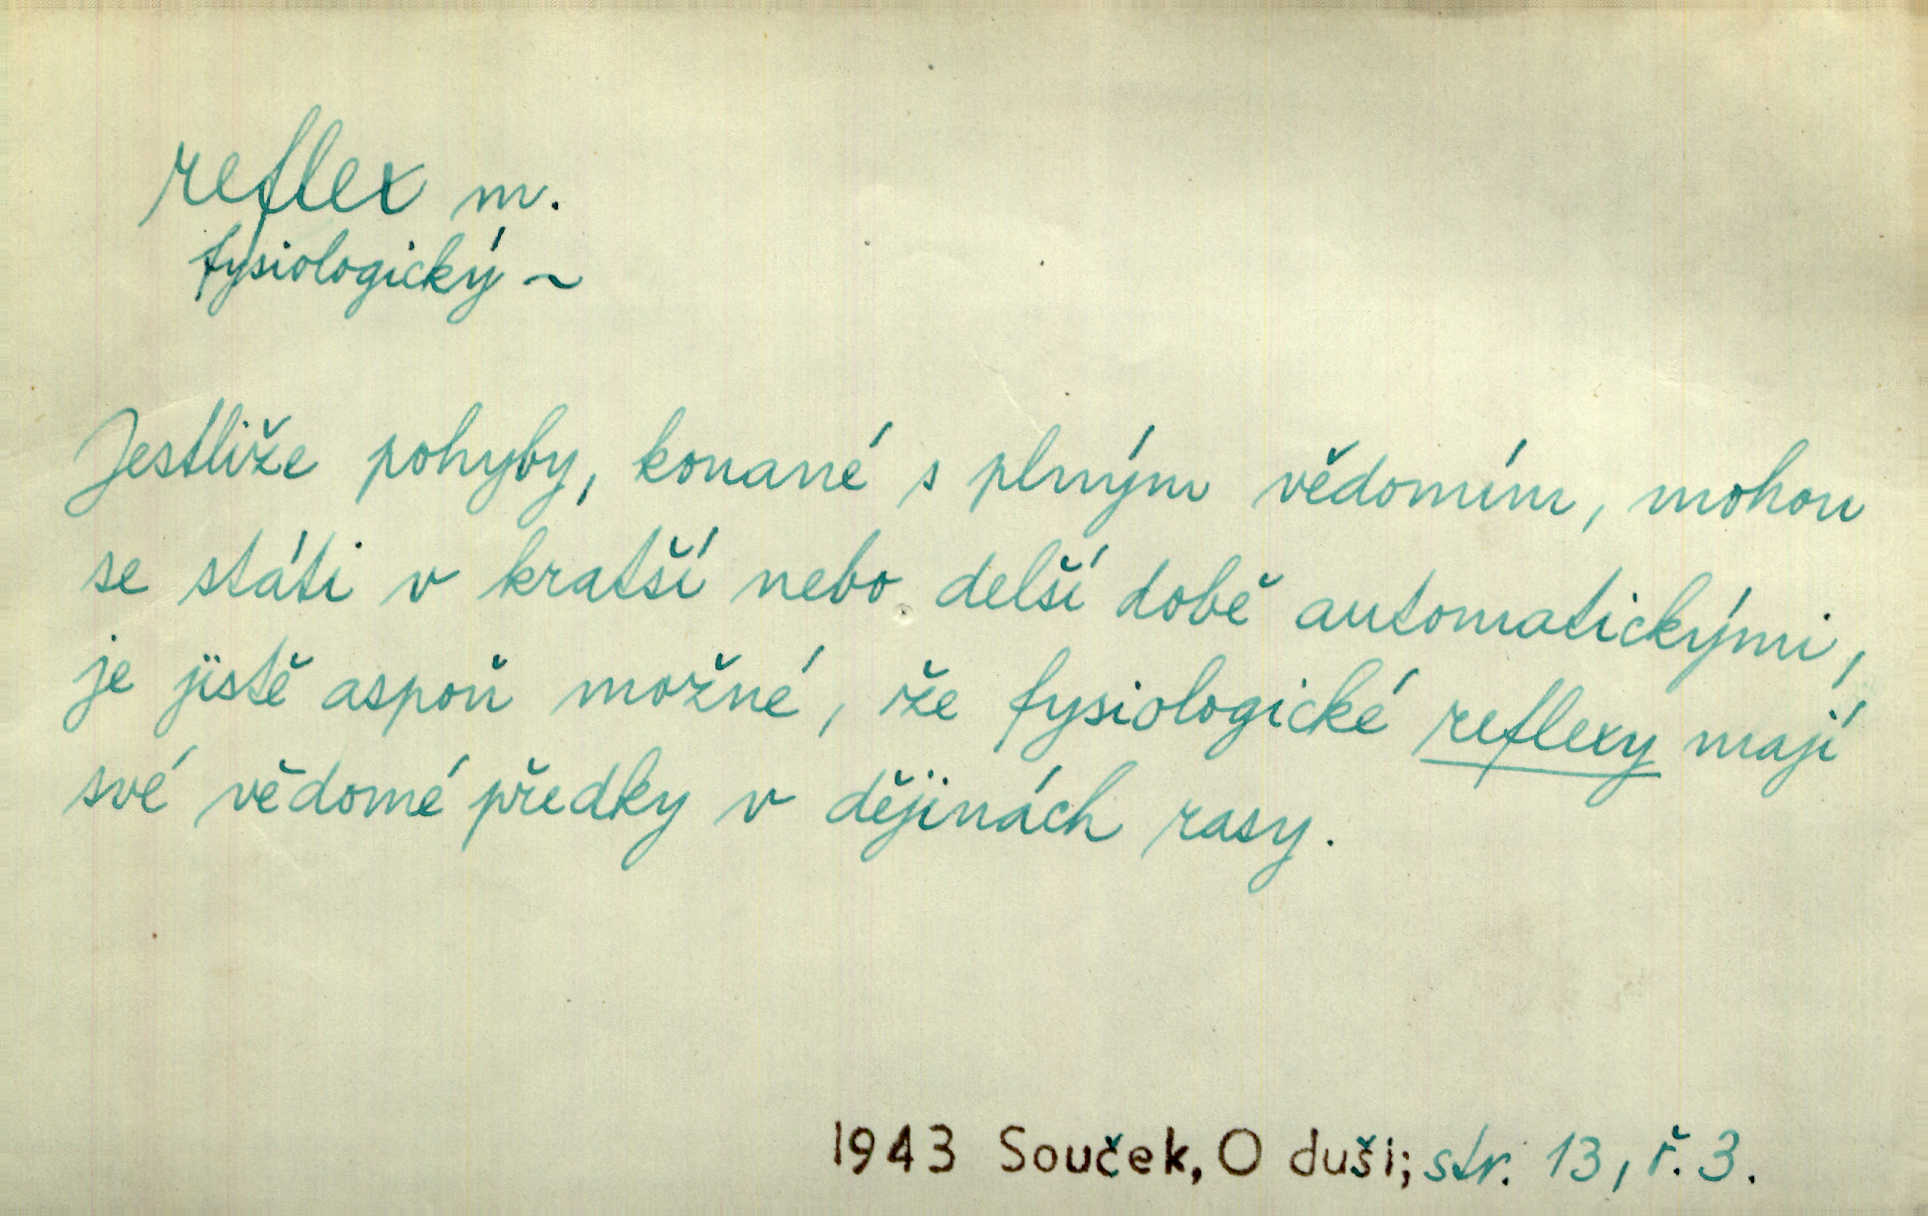 reflex m.
fysiologický ~
Jestliže pohyby, konané s plným vědomím, mohou
se státi v kratší nebo delší době automatickými,
je jistě aspoň možné, že fysiologické reflexy mají
své vědomé předky v dějinách rasy.
1943 Souček, O duši; str. 13, ř. 3.